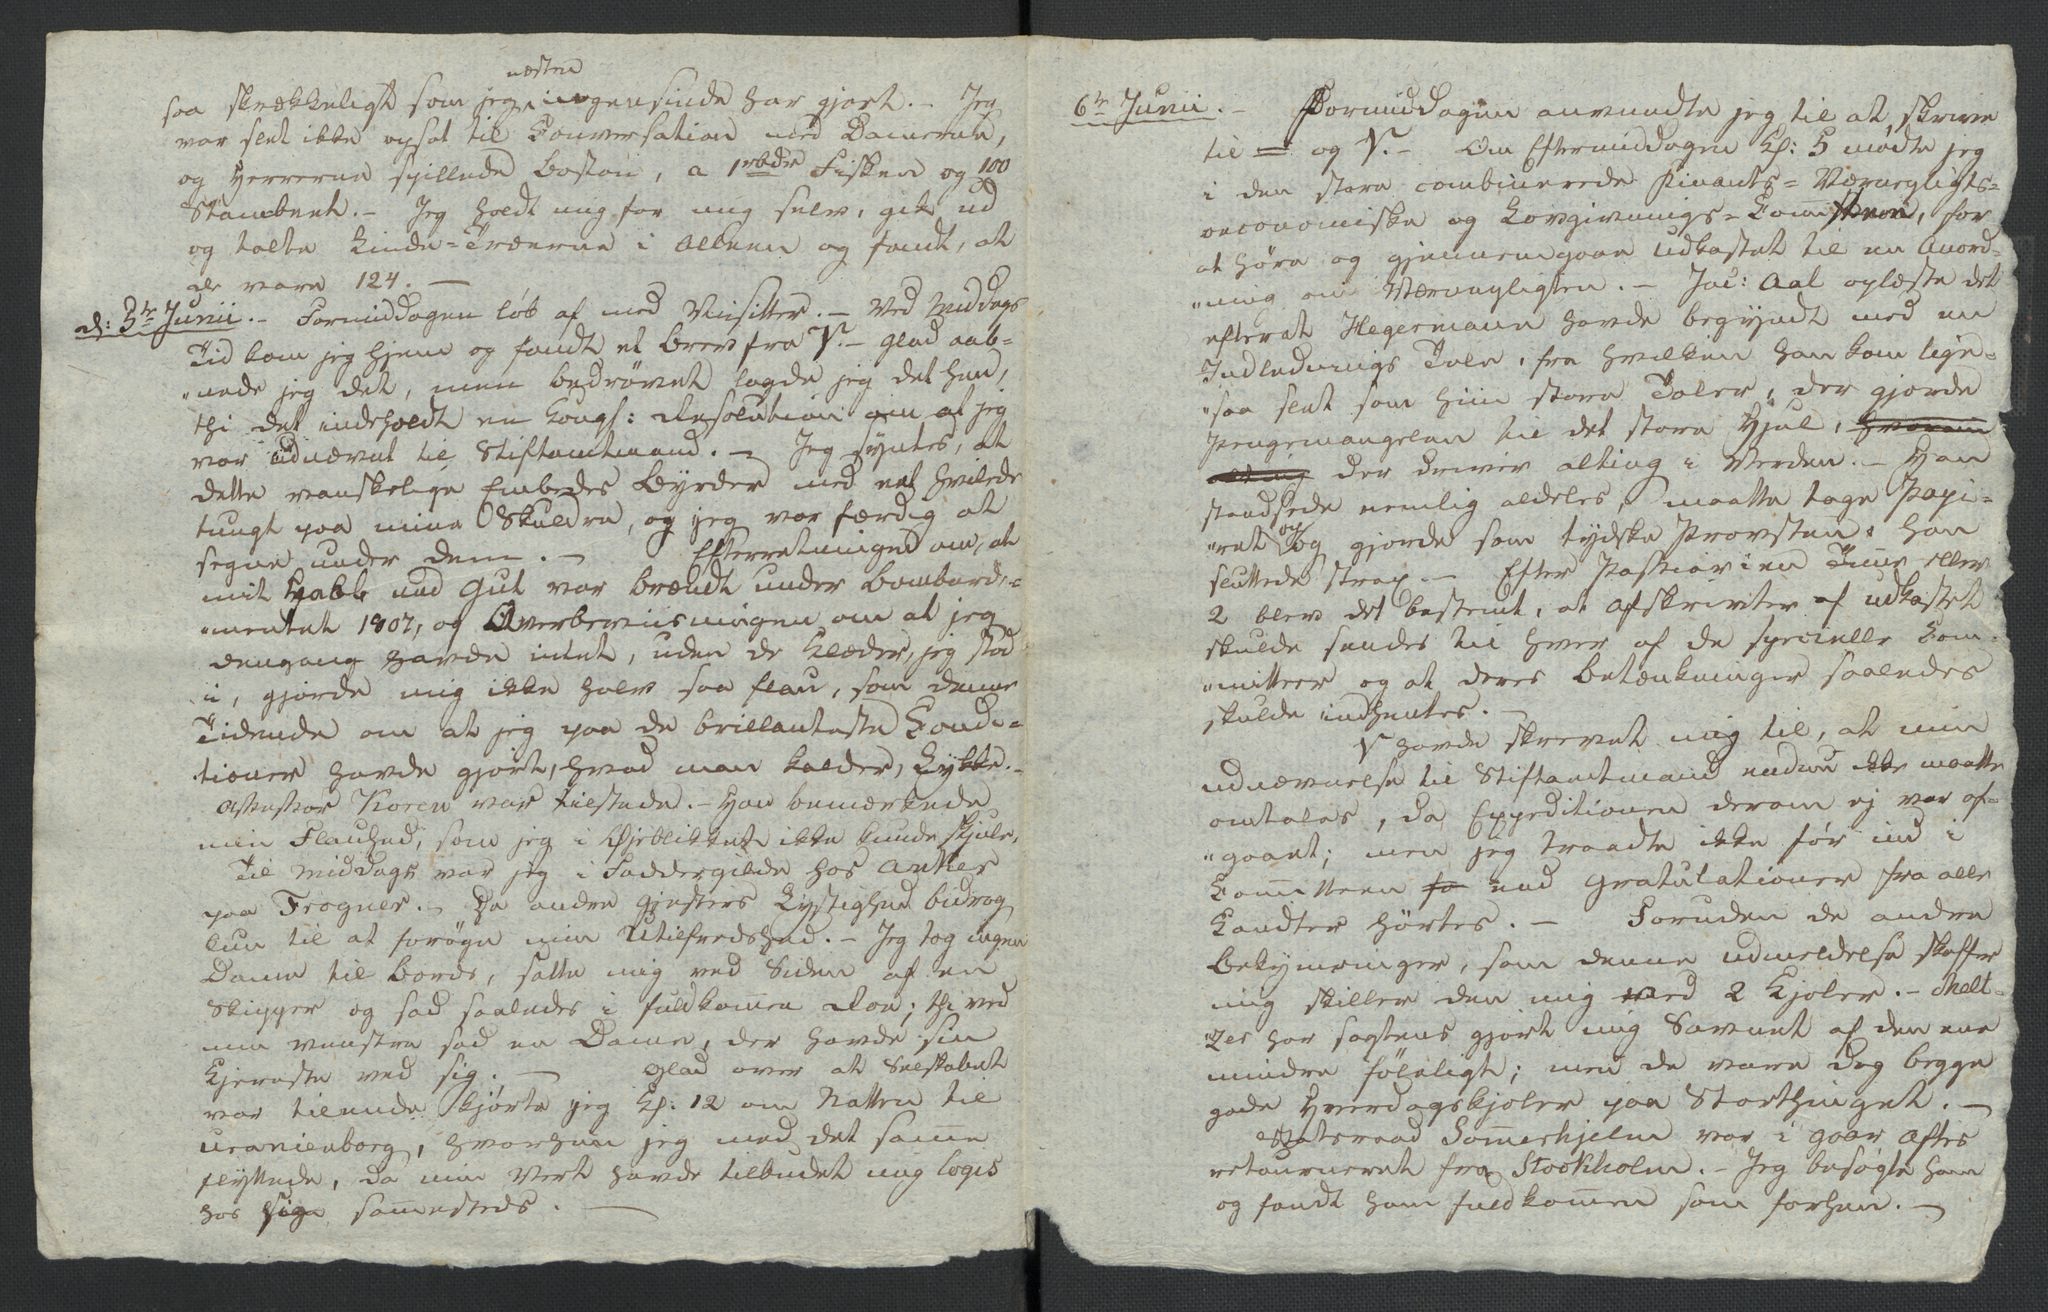 næsten
saa skrækkeligt som jeg ingensinde har gjort. – Jeg
var slet ikke opsat til Conversation med Damerne,
og Herrerne spillede Boston, a 1 rbdr Fisken og 100
Stambeet. – Jeg holdt mig for mig selv, gik ud
og talte Linde-Træerne i Alleen og fandt, at
de vare 124. —
d: 5te Junii. – Formiddagen løb af med Visitter. – Ved Middags
Tid kom jeg hjem og fandt et Brev fra V. – glad aab-
"nede jeg det, men bedrøvet lagde jeg det hen,
thi det indeholdt en Kongl: Resolution om at jeg
var udnævnt til Stiftamtmand. – Jeg syntes, at
dette vanskelige Embedes Byrder med eet hvilede
tungt paa mine Skuldre, og jeg var færdig at
segne under dem. – Efterretningen om, at
mit Haab und Gut var brændt under Bombarde-
"mentet 1807, og Overbeviisningen om at jeg
dengang havde intet, uden de Klæder, jeg stod
i, gjorde mig ikke halv saa flau, som denne
Tidende om at jeg paa de brillanteste Condi-
tioner havde gjort, hvad man kalder, Lykke. –
Assessor Koren var tilstede. – Han bemærkede
min Flauhed, som jeg i Øjeblikket ikke kunde skjule.
Til Middags var jeg i Faddergilde hos Anker
paa Frogner. – De andre Gjesters Lystighed bidrog
kun til at forøge min Utilfredshed. – Jeg tog ingen
Dame til Bords, satte mig ved Siden af en
Skipper og sad saaledes i fuldkommen Roe; thi ved
min venstre sad en Dame, der havde sin
Kjereste ved sig. – Glad over at Selskabet
var tilende kjørte jeg Kl: 12 om Natten til
Uranienborg, hvorhen jeg med det samme
flyttede, da min Vert havde tilbudet mig Logis
hos sig sammesteds. —
6te Junii. – Formiddagen anvendte jeg til at skrive
til = og V. – Om Eftermiddagen Kl: 5 mødte jeg
i den store combinerede Finants- Værnepligts-
oeconomiske og Lovgivnings-Comitteen, for
at høre og gjennemgaae Udkastet til en Anord-
"ning om Værnepligten. – Jac: Aal oplæste det
efterat Hegermann havde begyndt med en
Indlednings Tale, fra hvilken han kom lige-
"saa slet som hiin store Taler, der gjorde
Pengemangelen til det store Hjul, hvorom
alting der driver alting i Verden. – Han
standsede nemlig aldeles, maatte tage Papi-
"ret op og gjorde som tydske Provsten: han
sluttede strax. – Efter Passiar i en Time eller
2 blev det bestemt, at Afskrivter af Udkastet
skulde sendes til hver af de specielle Com-
"mitteer og at deres Betænkninger saaledes
skulde indhentes. –
V havde skrevet mig til, at min
Udnævnelse til Stiftamtmand endnu ikke maatte
omtales, da Expeditionen derom ej var af-
"gaaet; men jeg traadte ikke før ind i
Committeen fø end Gratulationer fra alle
Kandter hørtes. – Foruden de andre
Bekymringer, som denne Udmeldelse skaffer
mig skiller den mig ved 2 Kjoler. – Melt-
"zer har sagtens gjort mig Savnet af den ene
mindre føleligt; men de vare dog begge
gode Hverdagskjoler paa Storthinget. –
Statsraad Sommerhjelm var i gaar Aftes
retourneret fra Stockholm. – Jeg besøgte ham
og fandt ham fuldkommen som forhen. –